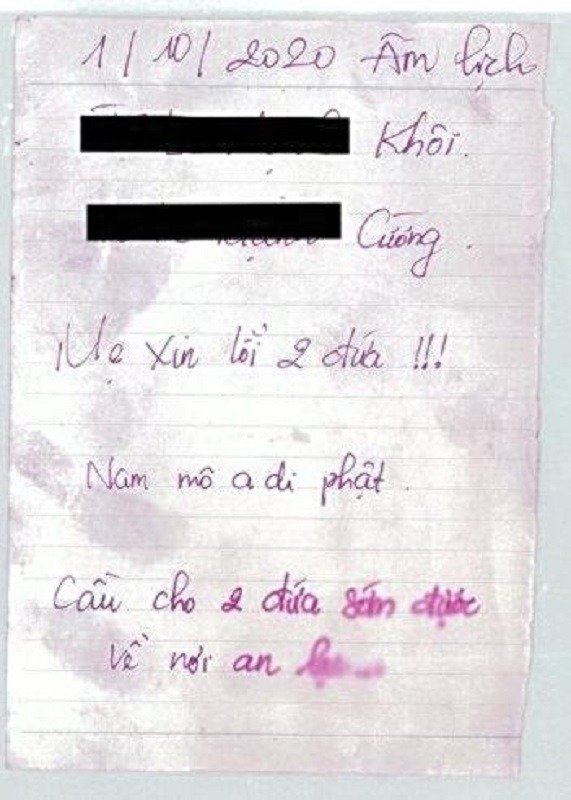 1/10/2020 Âm lịch
Khôi.
Cường.
Mẹ xin lỗi 2 đứa !!!
Nam mô a di phật.
Cầu cho 2 đứa sớm được
Về nơi an